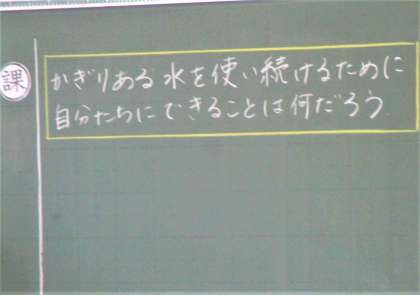 課
かぎりある水を使い続けるために
自分たちにできることは何だろう